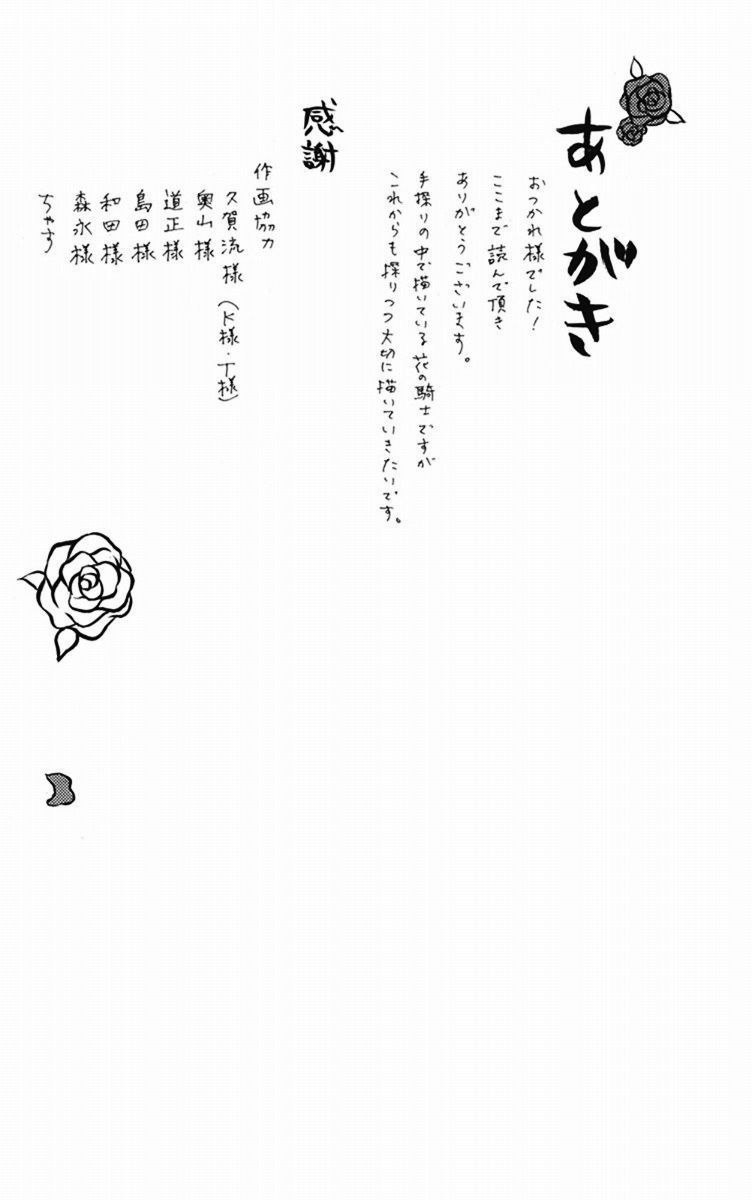 あとがき
おつかれ様でした!
ここまで読んで頂き
ありがとうございます。
手探りの中で描いている花の騎士ですが
これからも探りつつ大切に描いていきたいです。
感謝
作画協力
久賀流様(K様・T様)
奥山様
道正様
島田様
和田様
森永様
ちやす